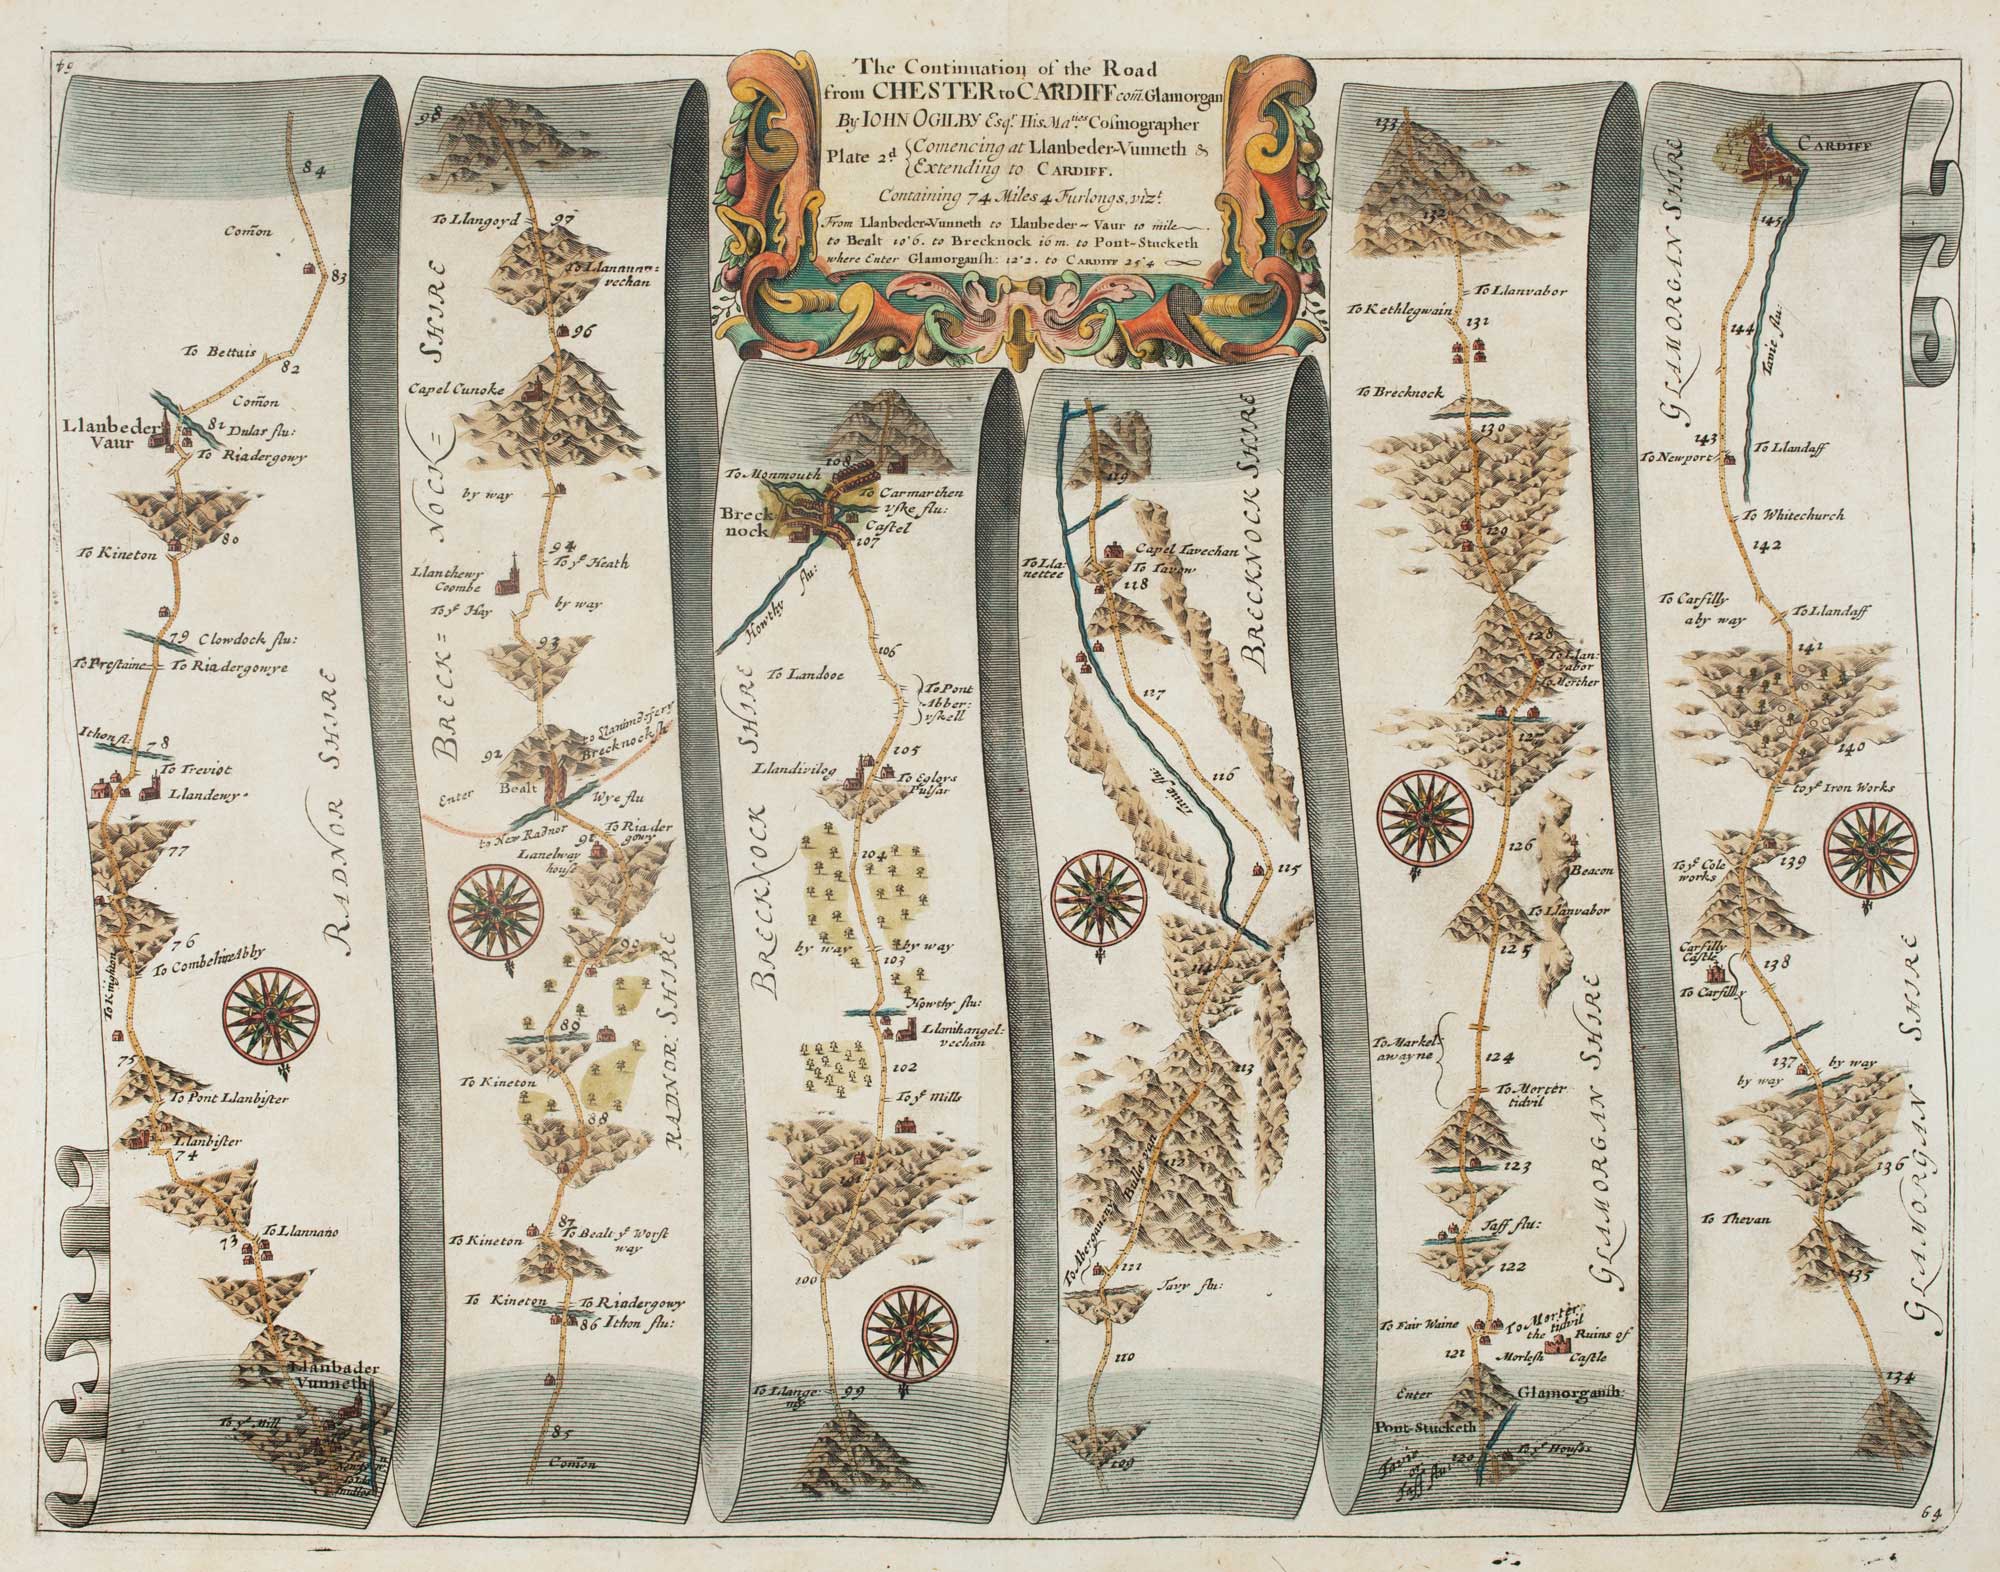 The Continuation of the Road
from CHESTER to CARDIFF com. Glamorgan
By IOHN OGILBY Esqr. His Maties. Cosmographer
Plate 2d Comencing at Llanbeder-Vunneth &
Extending to CARDIFF.
Containing 74 Miles 4 Furlongs, vizt.
From Llanbeder-Vunneth to Llanbeder-Vaur 10 mile
to Bealt 10'6. to Brecknock 16 m. to Pont-Stucketh
where Enter Glamorgansh: 12'2. to CARDIFF 25'4
64
84
Comon
83
To Bettuis
82
Comon
Llanbeder
Vaur
81
Dulas flu:
To Riadergowy
80
To Kineton
79
Clowdock flu:
To Prestaine
To Riadergowye
Ithon fl:
78
To Treviot
Llandewy
77
RADNOR SHIRE
76
To Combehire Abby
To Knighton
75
To Pont Llanbister
Llanbister
74
To Llannano
73
72
Llanbader
Vunneth
To ye Mill
98
To Llangoyd
97
To Llanauan=
vechan
96
Capel Cunoke
95
BRECK=NOCK=SHIRE
by way
94
To ye Heath
Llanthewy
Coombe
To ye Hay
by way
93
92
to Llanimdofery
Brecknocksh
Bealt
Enter
Wye flu
to New Radnor
91
To Riader
gowy
Lanelway
house
90
89
To Kineton
88
RADNOR: SHIRE
87
To Kineton
To Bealt ye Worst
way
To Kineton
To Riadergowy
86
Ithon flu:
85
Comon
108
To Monmouth
To Carmarthen
Vske flu:
Castel
Breck
nock
107
Howthy flu:
106
To Landooe
To Pont
Abber:
vskell
105
Llandivilog
To Eglors
Pulsar
104
by way
by way
103
Howthy flu:
Llanihangel=
vechan
102
To ye Mills
BRECKNOCK SHIRE
101
100
To Llange
ny
99
119
Capel Tavechan
To Tavow
To Lla=
nettee
118
BRECKNOCK SHIRE
117
116
Tavie flu:
115
114
113
112
Bulla van
To Abergaueny
111
Tavy flu:
110
109
133
132
To Llanvabor
To Kethlegwain
131
To Brecknock
130
129
128
To Llan=
vabor
To Merther
127
126
Beacon
To Llanvabor
125
To Markel
awayne
124
To Merter
tidvil
GLAMORGAN SHIRE
123
Taff flu:
122
To Fair Waine
To Merter
the tidvil
121
Ruins of
Morlesh Castle
Enter
Glamorgansh:
Pont-Stucketh
120
To ye Houses
Tavie
or
Taff flu:
CARDIFF
145
GLAMORGAN SHIRE
144
Tavie flu:
143
To Newport
To Llandaff
To Whitechurch
142
To Carfilly
aby way
To Llandaff
141
140
to ye Iron Works
139
To ye Cole
works
Carfilly
Castle
138
To Carfilly
137
by way
by way
136
To Thevan
135
GLAMORGAN SHIRE
134
64